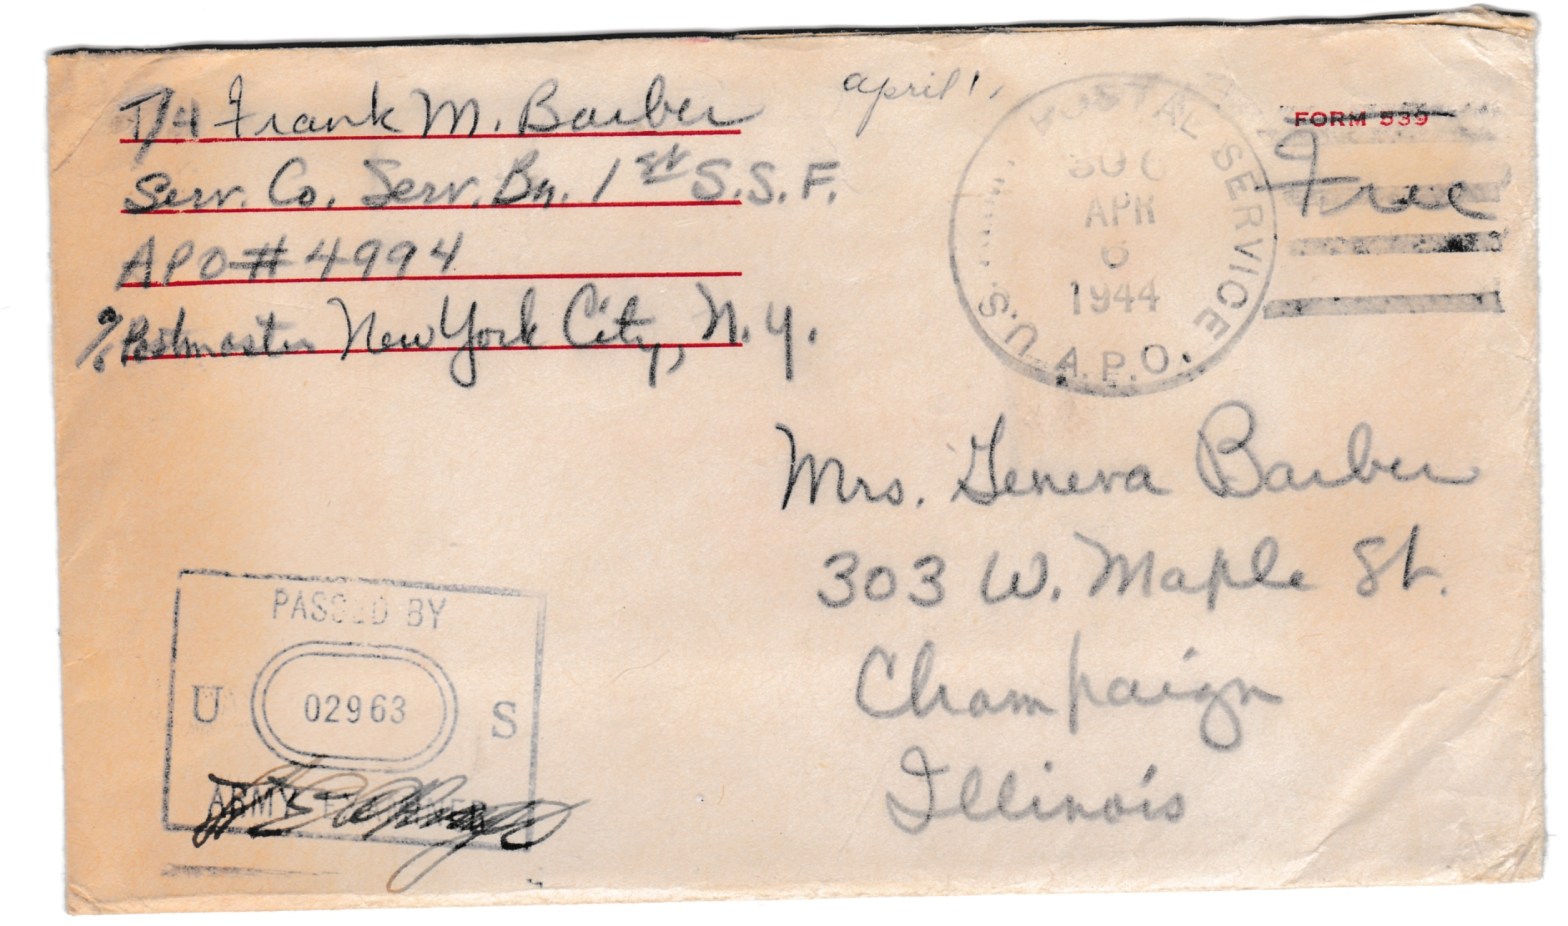 T/4 Frank M. Barber
Serv. Co. Serv. Bn. 1st S.S.F.
APO # 4994
% Postmaster New York City, N.Y.
april 1,
U.S. POSTAL SERVICE
APR
6
1944
A.P.O.
FORM 539
Free
Mrs. Geneva Barber
303 W. Maple St.
Champaign
Illinois
PASSED BY
U 02963 S
ARMY EXAMINER